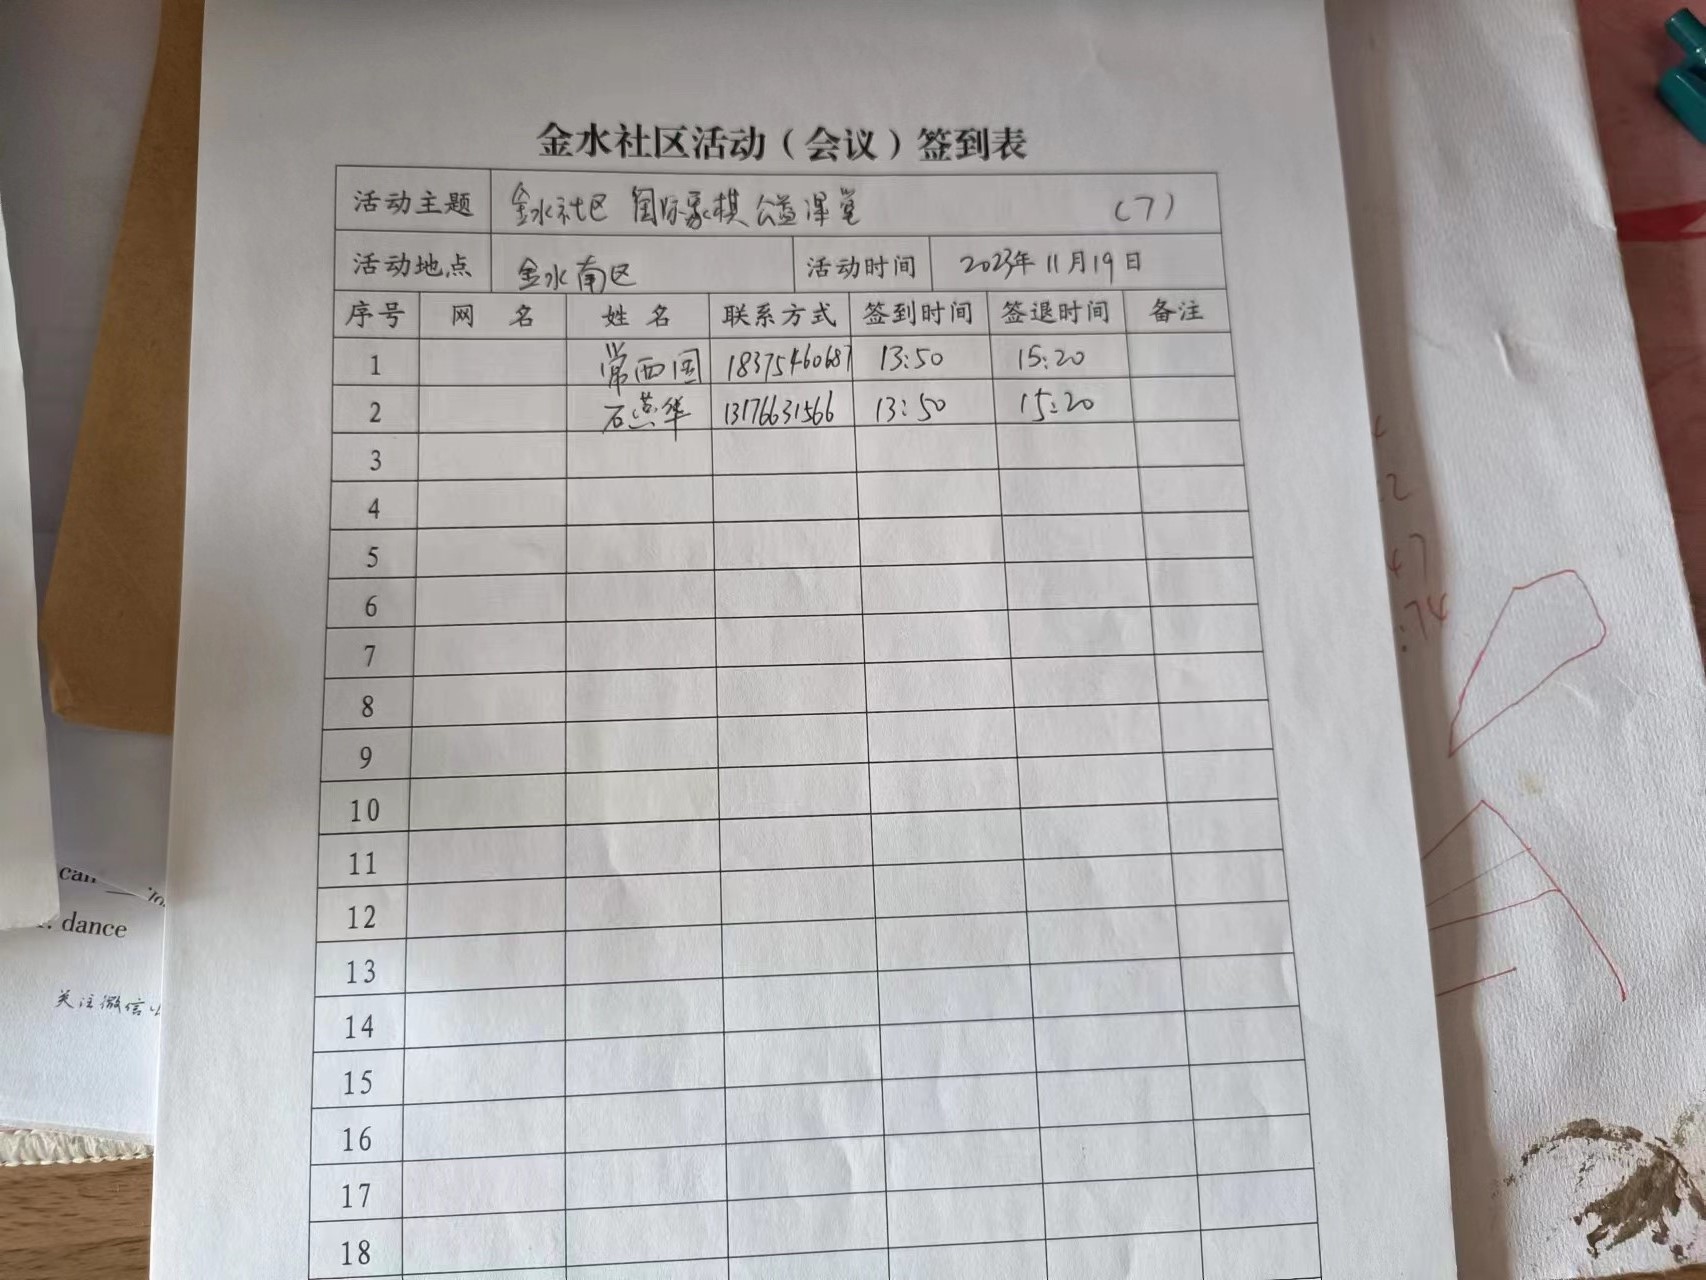 金水社区活动（会议）签到表
活动主题 金水社区 国际象棋公益课堂 (7)
活动地点 金水南区 活动时间 2023年11月19日
序号 网 名 姓 名 联系方式 签到时间 签退时间 备注
1 常西国 18375460687 13:50 15:20
2 石燕华 13176631566 13:50 15:20
3
4
5
6
7
8
9
10
11
12
13
14
15
16
17
18
can
dance
关注微信